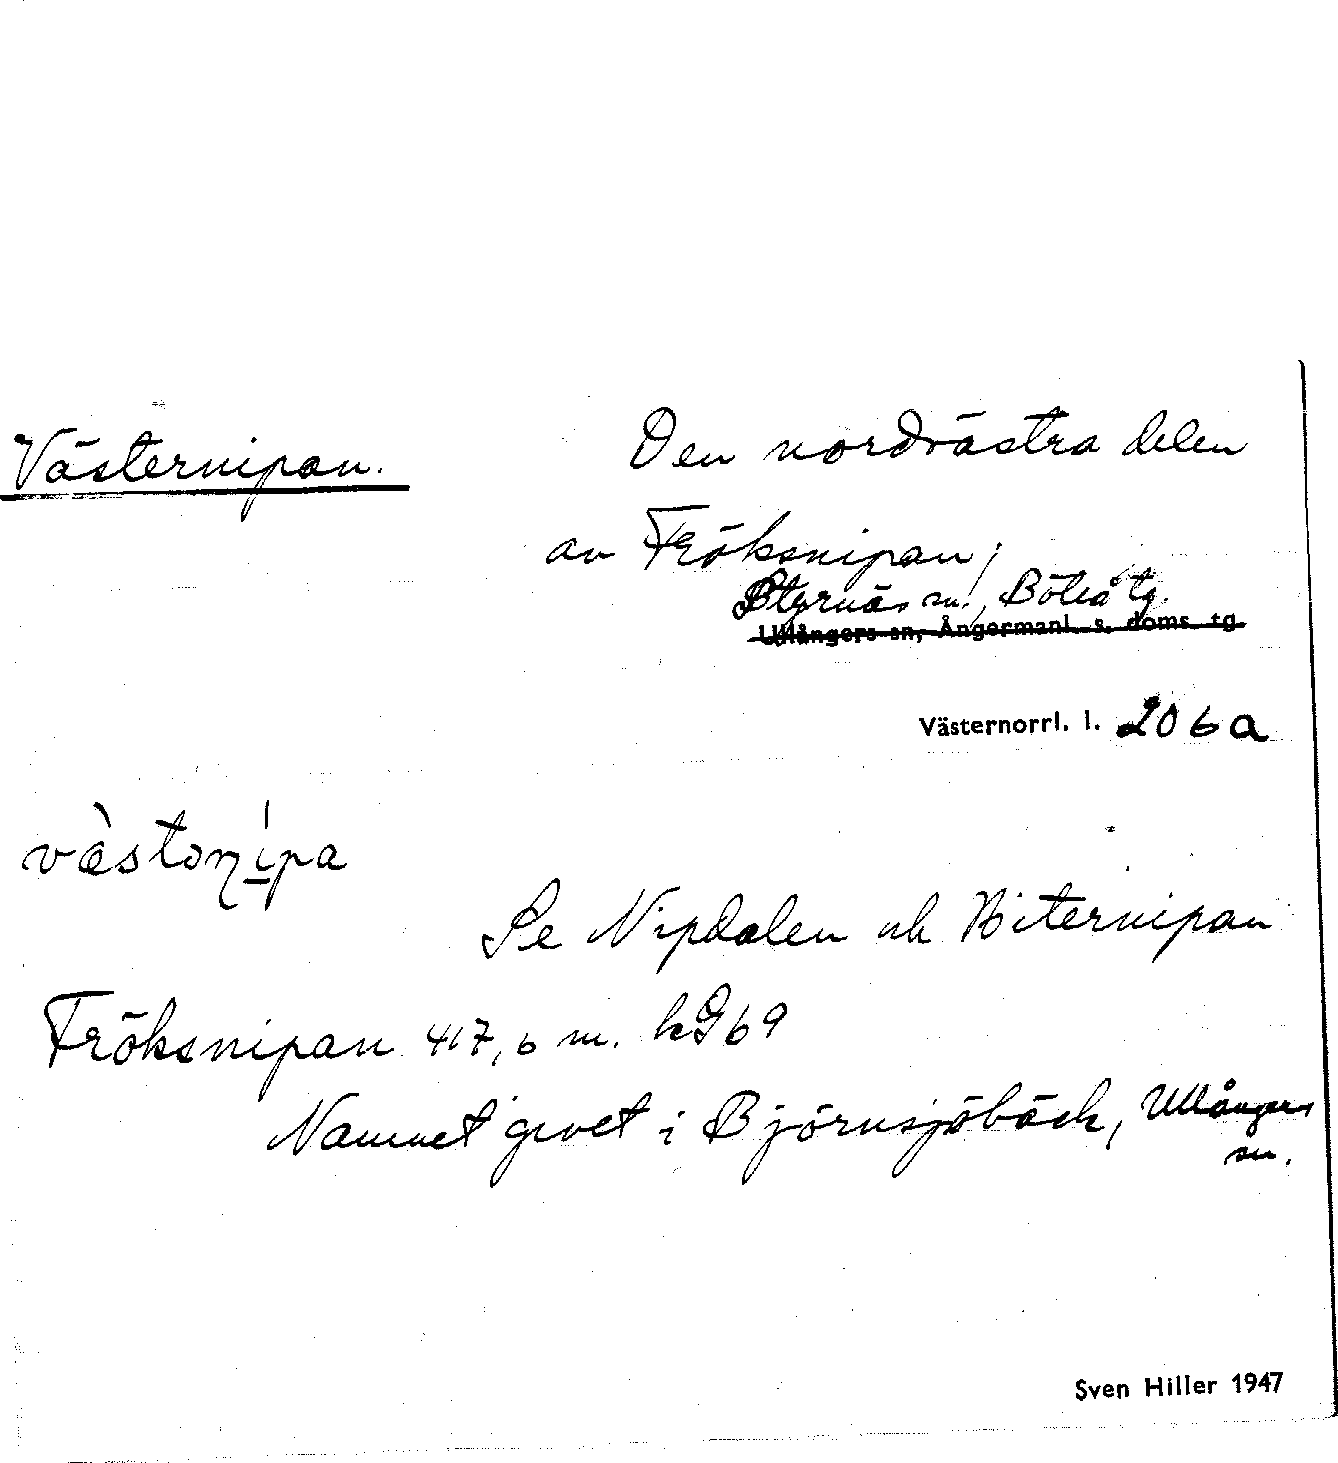 Västernipan.
Den nordvästra delen
av Fröksnipan;
Styrnäs sn., Boteå tg.
Ullångers sn, Ångermanl. s. doms. tg.
Västernorrl. l. 206a
Se Nipdalen och Biternipan
Fröksnipan 417,6 m. kG69
Namnet givet i Björnsjöbäck, Ullångers
sn.
Sven Hiller 1947